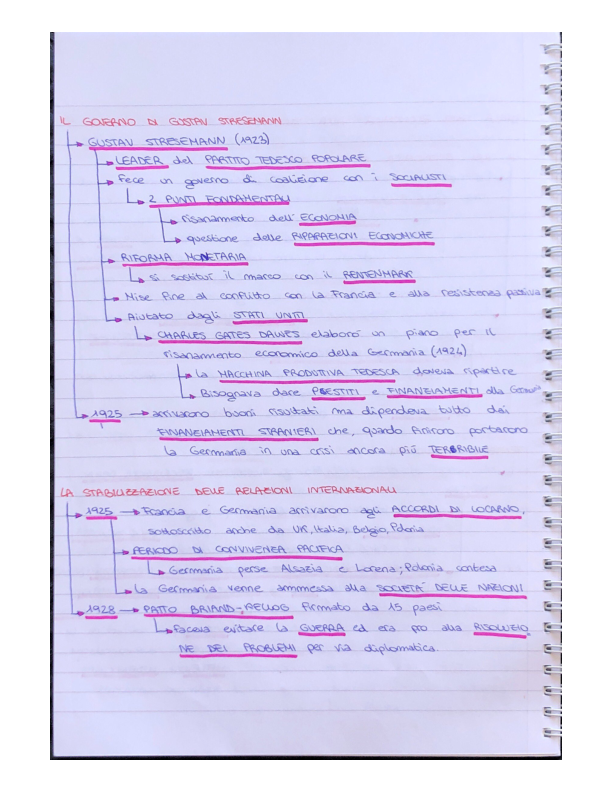 IL GOVERNO DI GUSTAV STRESEMANN
GUSTAV STRESEMANN (1923)
LEADER del PARTITO TEDESCO POPOLARE
Fece un governo di coalizione con i SOCIALISTI
2 PUNTI FONDAMENTALI
risanamento dell'ECONOMIA
questione delle RIPARAZIONI ECONOMICHE
RIFORMA MONETARIA
si sostituì il marco con il RENTENMARK
Mise fine al conflitto con la Francia e alla resistenza passiva
Aiutato dagli STATI UNITI
CHARLES GATES DAWES elaborò un piano per il
risanamento economico della Germania (1924)
la MACCHINA PRODUTTIVA TEDESCA doveva ripartire
Bisognava dare PRESTITI e FINANZIAMENTI alla Germania
1925 arrivarono buoni risultati ma dipendeva tutto dai
FINANZIAMENTI STRANIERI che, quando finirono portarono
la Germania in una crisi ancora più TERRIBILE
LA STABILIZZAZIONE DELLE RELAZIONI INTERNAZIONALI
1925 Francia e Germania arrivarono agli ACCORDI DI LOCARNO,
sottoscritto anche da UK, Italia, Belgio, Polonia
PERIODO DI CONVIVENZA PACIFICA
Germania perse Alsazia e Lorena; Polonia contesa
la Germania venne ammessa alla SOCIETÀ DELLE NAZIONI
1928 PATTO BRIAND-KELLOG firmato da 15 paesi
faceva evitare la GUERRA ed era pro alla RISOLUZIO
NE DEI PROBLEMI per via diplomatica.